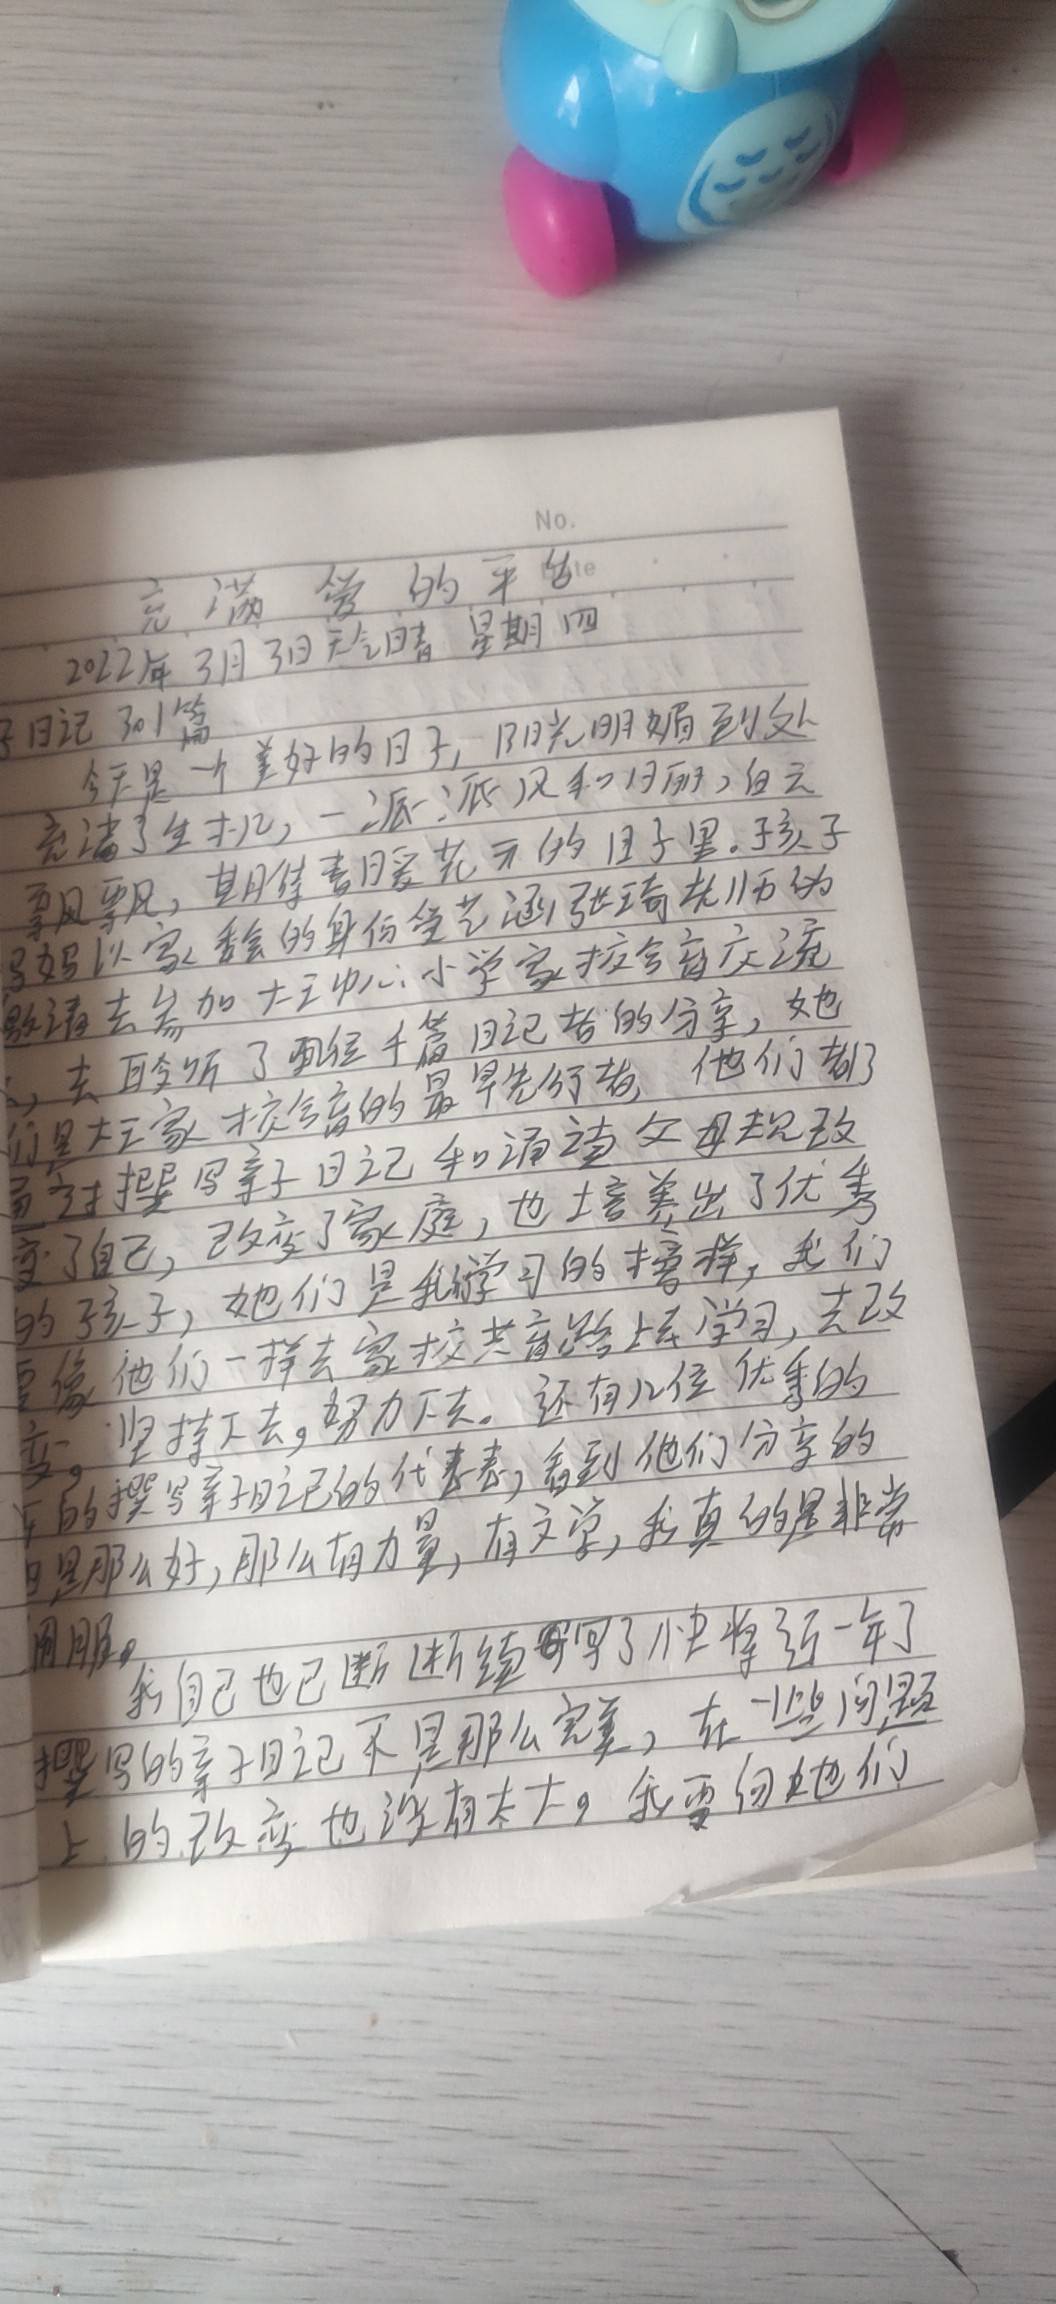 No.
Date
充满爱的平台
2022年3月3日 天气晴 星期四
子日记 301篇
今天是一个美好的日子，阳光明媚到处
充满了生机，一派派风和日丽，白云
飘飘，期待春日暖花开的日子里。于孩子
妈妈以家委会的身份受艺涵张琦老师的
邀请去参加大王中心小学家校合育交流
，去聆听了两位千篇日记者的分享，她
们是大王家校合育的最早先行者，他们都
通过撰写亲子日记和诵读父母规改
变了自己，改变了家庭，也培养出了优秀
的孩子，她们是我学习的榜样，我们
要像他们一样去家校共育路上去学习，去改
变，坚持下去，努力下去。还有几位优秀的
年的撰写亲子日记的代表表，看到他们分享的
日是那么好，那么有力量，有文学，我真的是非常
佩服。
我自己也已断断续写了快掌近一年了
撰写的亲子日记不是那么完美，在一些问题
上的改变也没有太大。我要向她们